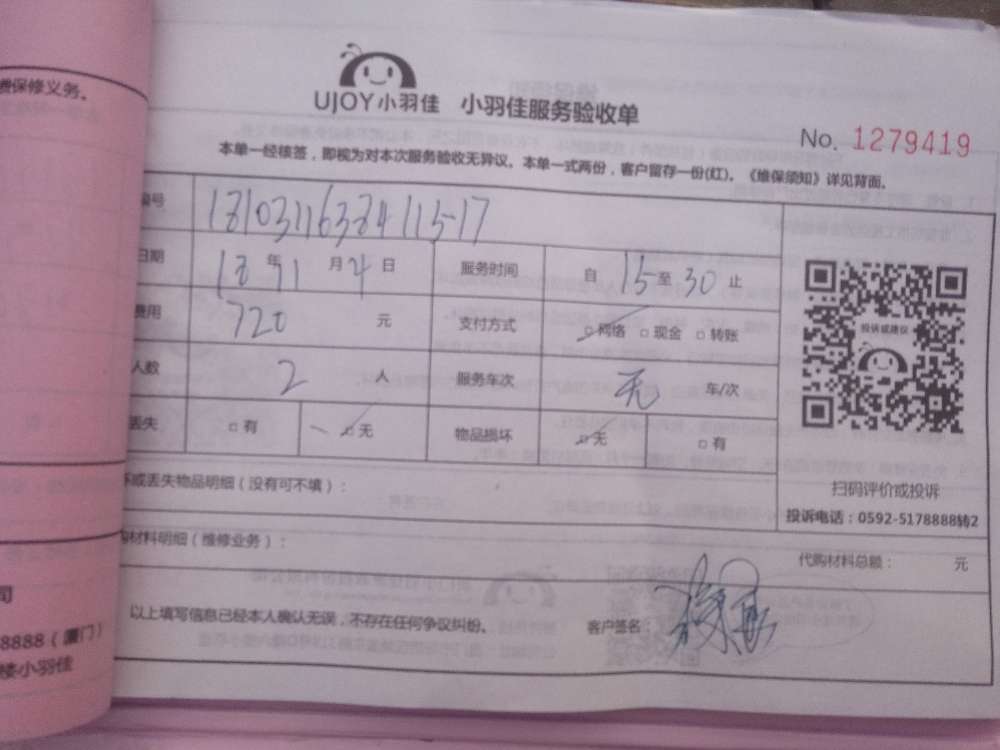 费保修义务。
UJOY小羽佳 小羽佳服务验收单
No. 1279419
本单一经核签，即视为对本次服务验收无异议。本单一式两份，客户留存一份(红)。《维保须知》详见背面。
编号
日期 18 年 11 月 4 日 服务时间 自 15 至 30 止
费用 720 元 支付方式 □网络 □现金 □转账
人数 2 人 服务车次 无 车/次
丢失 □有 □无 物品损坏 □无 □有
投诉或建议
扫码评价或投诉
投诉电话：0592-5178888转2
坏或丢失物品明细（没有可不填）：
购材料明细（维修业务）：
代购材料总额： 元
以上填写信息已经本人确认无误，不存在任何争议纠纷。 客户签名：
司
8888（厦门）
楼小羽佳